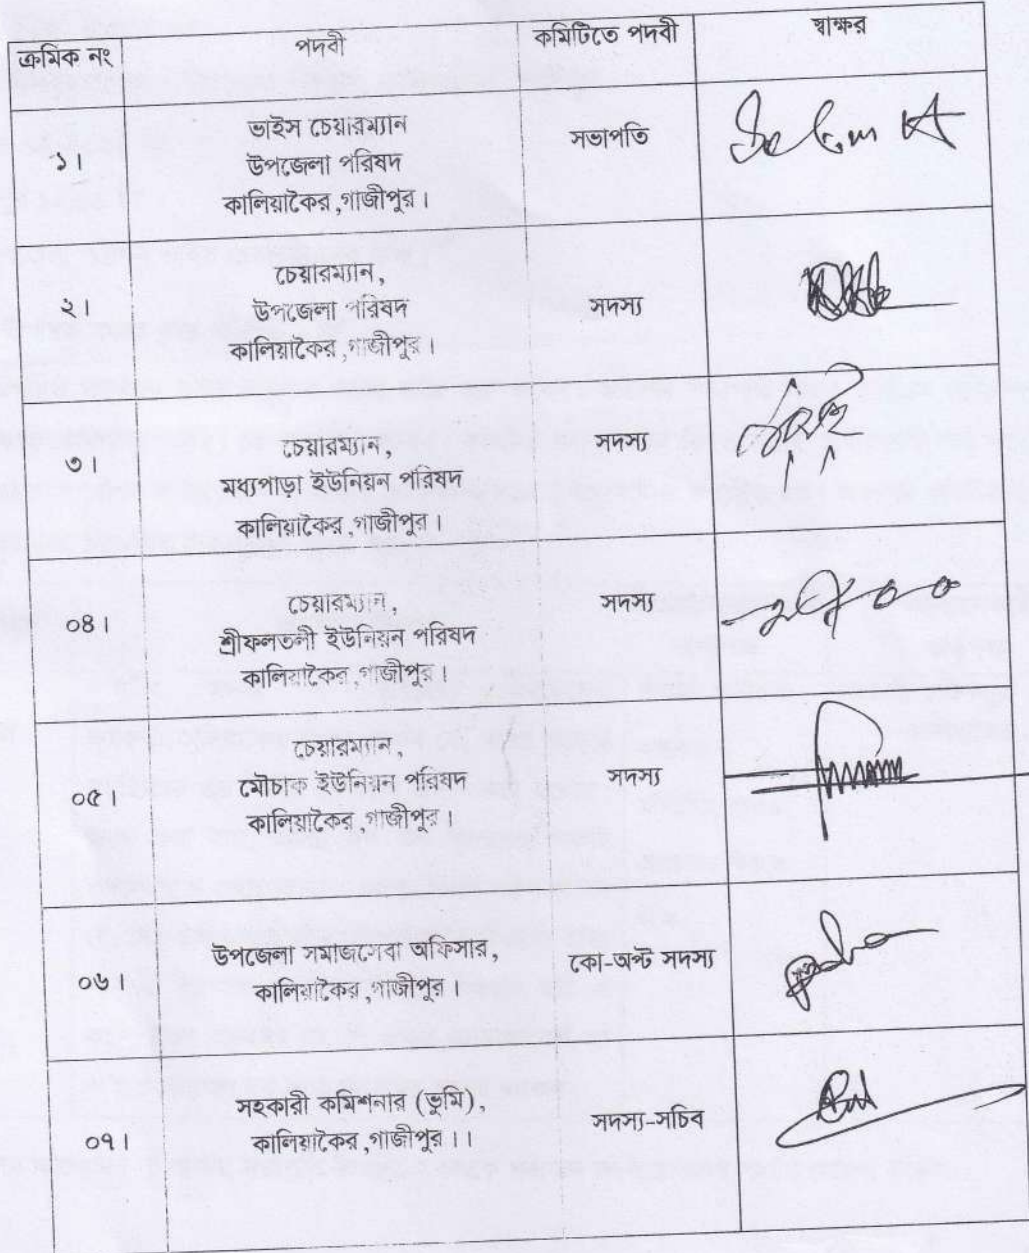 ক্রমিক নং পদবী কমিটিতে পদবী স্বাক্ষর
১। ভাইস চেয়ারম্যান
উপজেলা পরিষদ
কালিয়াকৈর,গাজীপুর। সভাপতি
২। চেয়ারম্যান,
উপজেলা পরিষদ
কালিয়াকৈর,গাজীপুর। সদস্য
৩। চেয়ারম্যান,
মধ্যপাড়া ইউনিয়ন পরিষদ
কালিয়াকৈর,গাজীপুর। সদস্য
০৪। চেয়ারম্যান,
শ্রীফলতলী ইউনিয়ন পরিষদ
কালিয়াকৈর,গাজীপুর। সদস্য
০৫। চেয়ারম্যান,
মৌচাক ইউনিয়ন পরিষদ
কালিয়াকৈর,গাজীপুর। সদস্য
০৬। উপজেলা সমাজসেবা অফিসার,
কালিয়াকৈর,গাজীপুর। কো-অপ্ট সদস্য
০৭। সহকারী কমিশনার (ভুমি),
কালিয়াকৈর,গাজীপুর।। সদস্য-সচিব